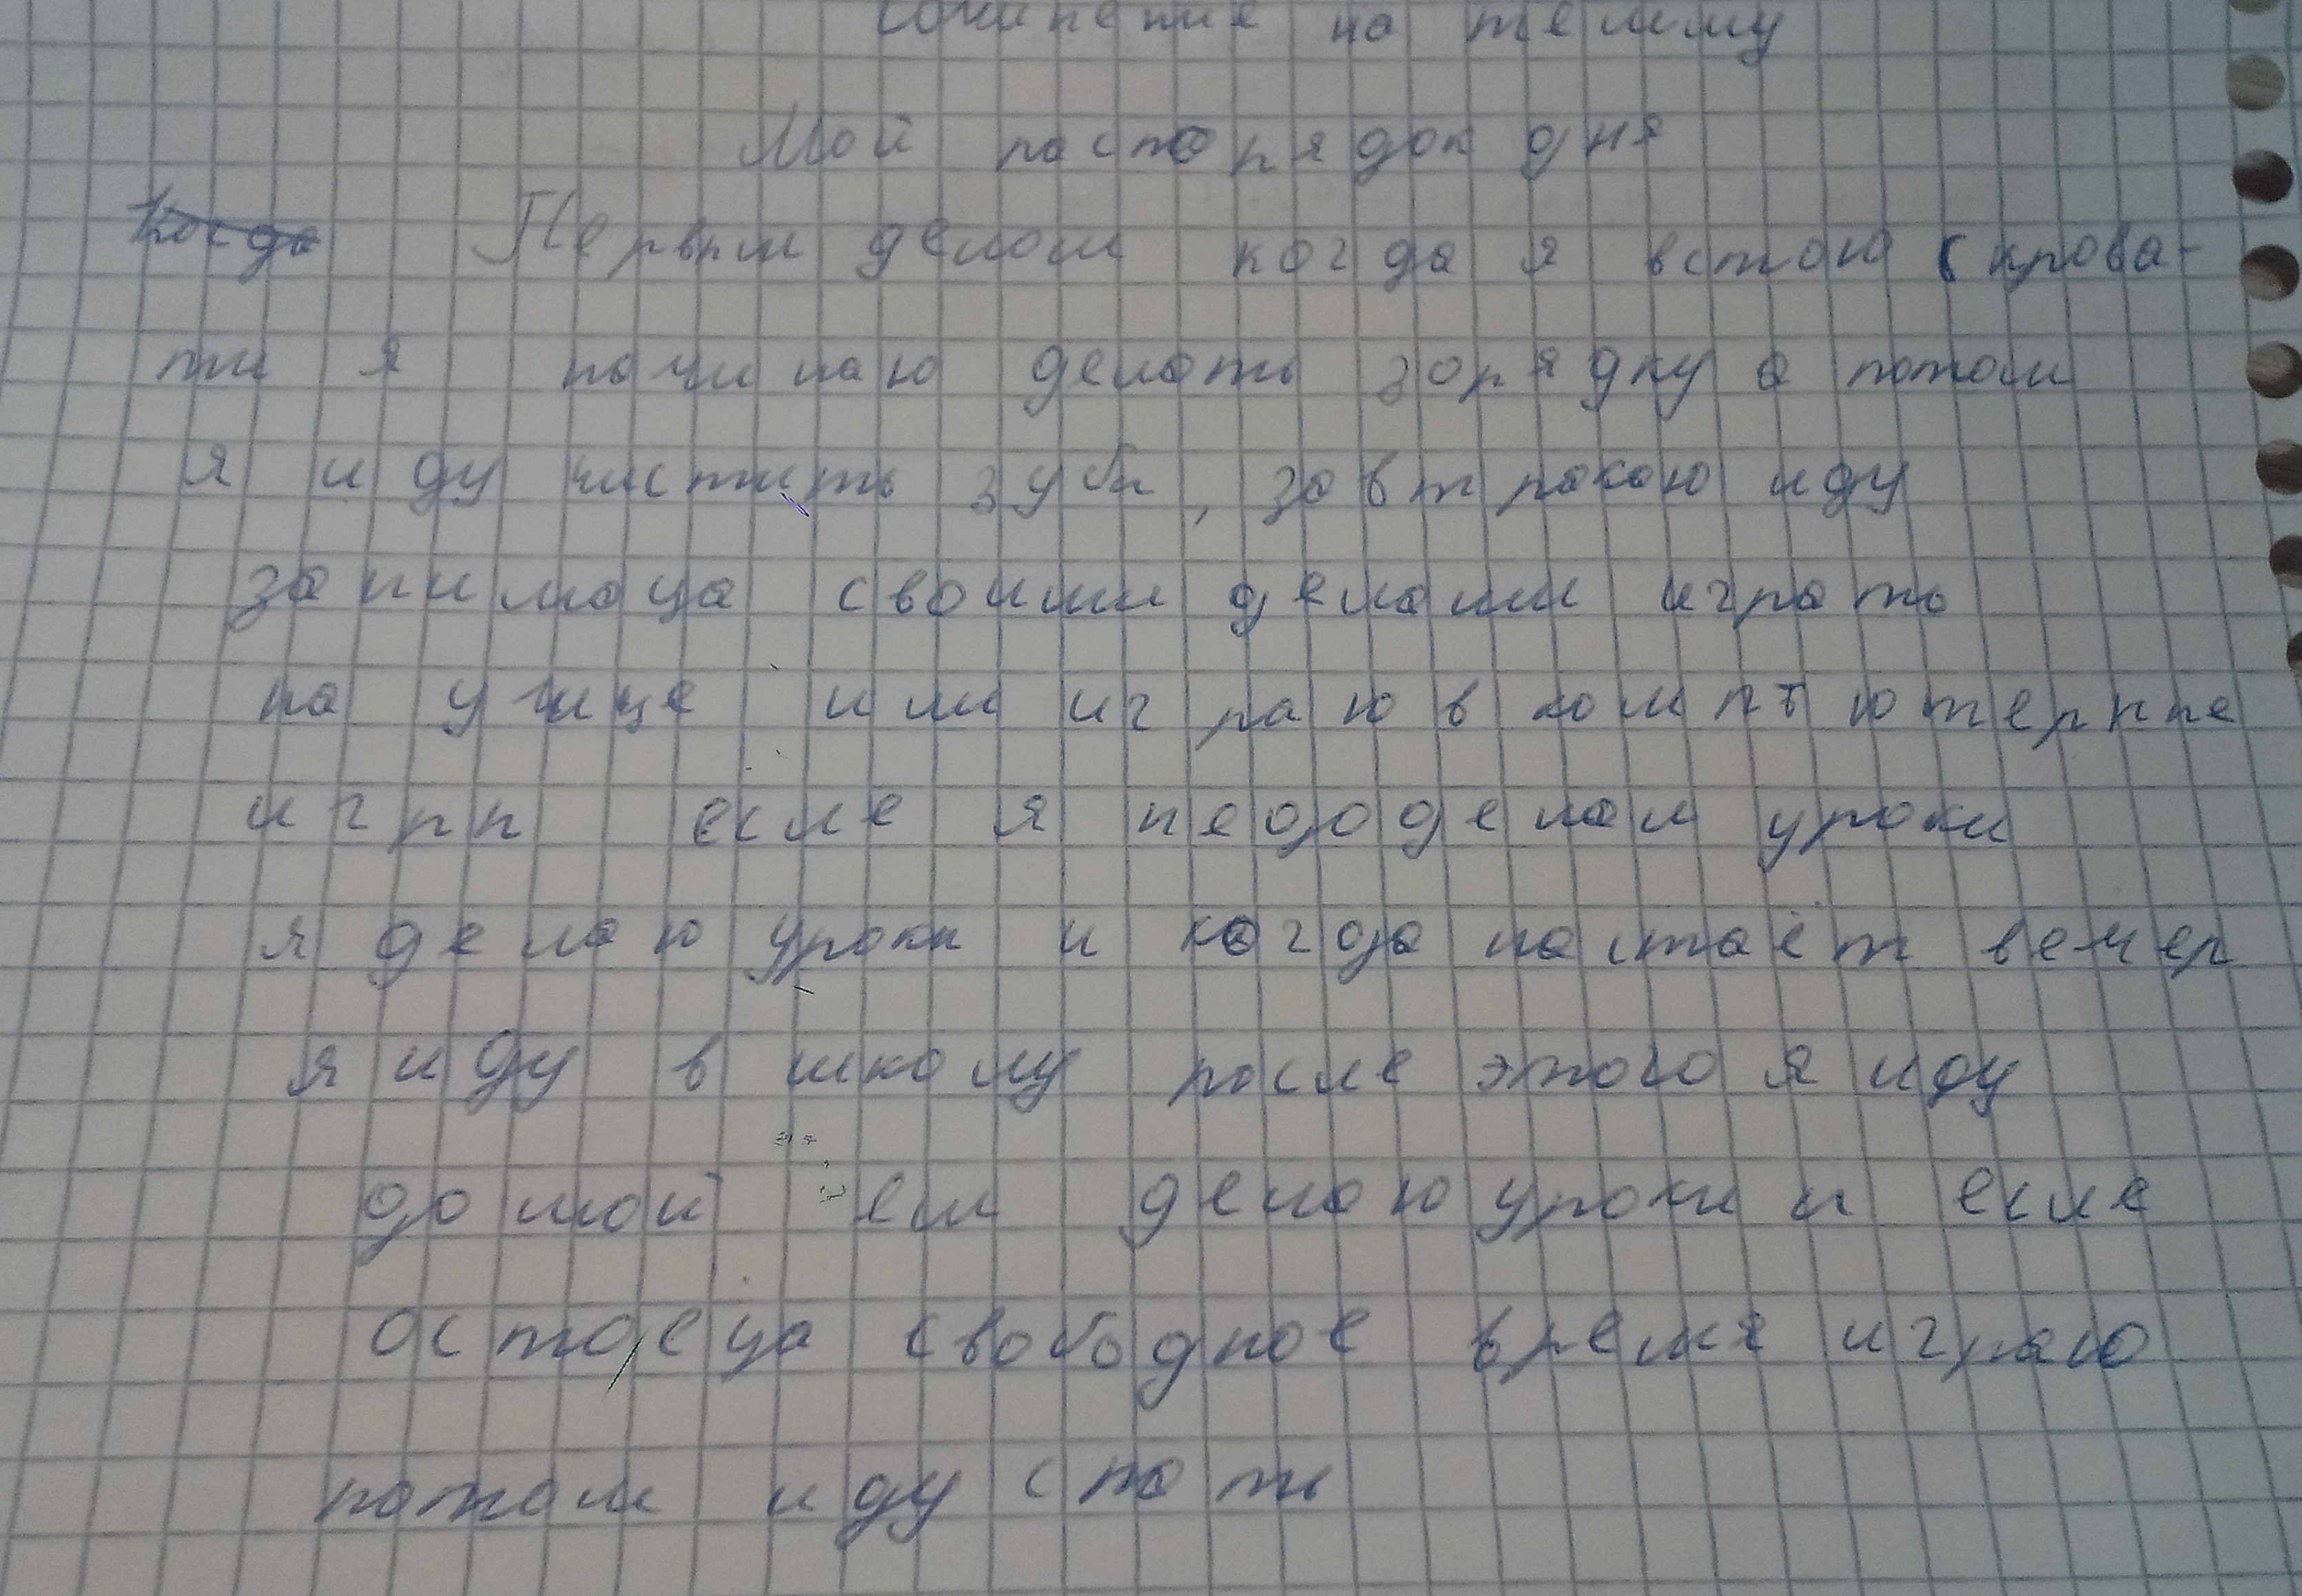 сочинение на темму
Мой распорядок дня
Когда Первым делом когда я встаю с крова-
ти я начинаю делать зарядку а потом
я иду чистить зубы, завтракаю иду
занимаца своими делами играть
на улице или играю в компъютерные
игры есле я недоделал уроки
я делаю уроки и когда настаёт вечер
я иду в школу после этого я иду
домой ем делаю уроки и есле
остаеца свободное время играю
потом иду спать